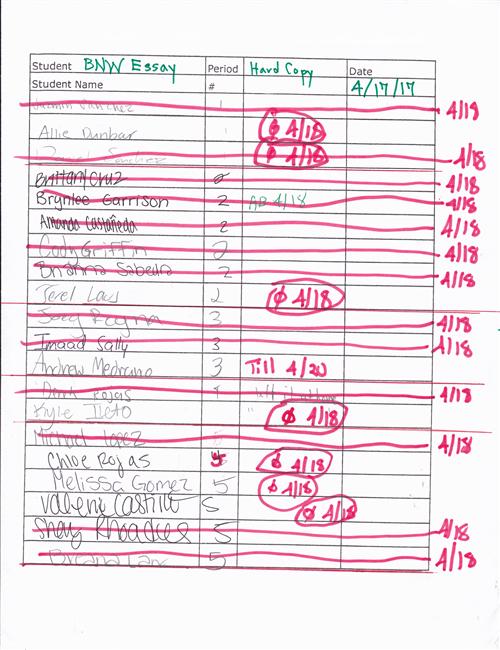 Student BNW Essay Period Hard Copy Date
Student Name # 4/17/17
Sanchez 1 4/18
Allie Dunbar 1 ϕ 4/18
Sanchez ϕ 4/18 4/18
Brittany Cruz 2 4/18
Brynlee Garrison 2 AB 4/18 4/18
Amanda Castañeda 2 4/18
Cody Griffin 2 4/18
Sabedra 2 4/18
Jerel Laws 2 ϕ 4/18
Joey Reyna 3 4/18
Imaad Sally 3 4/18
Andrew Medrano 3 Till 4/20
Rojas 4/18
Kyle " ϕ 4/18
Michael 4/18
Chloe Rojas 5 ϕ 4/18
Melissa Gomez 5 ϕ 4/18
Valerie Castillo 5 ϕ 4/18
Shay Rhoades 5 4/18
Briana 5 4/18